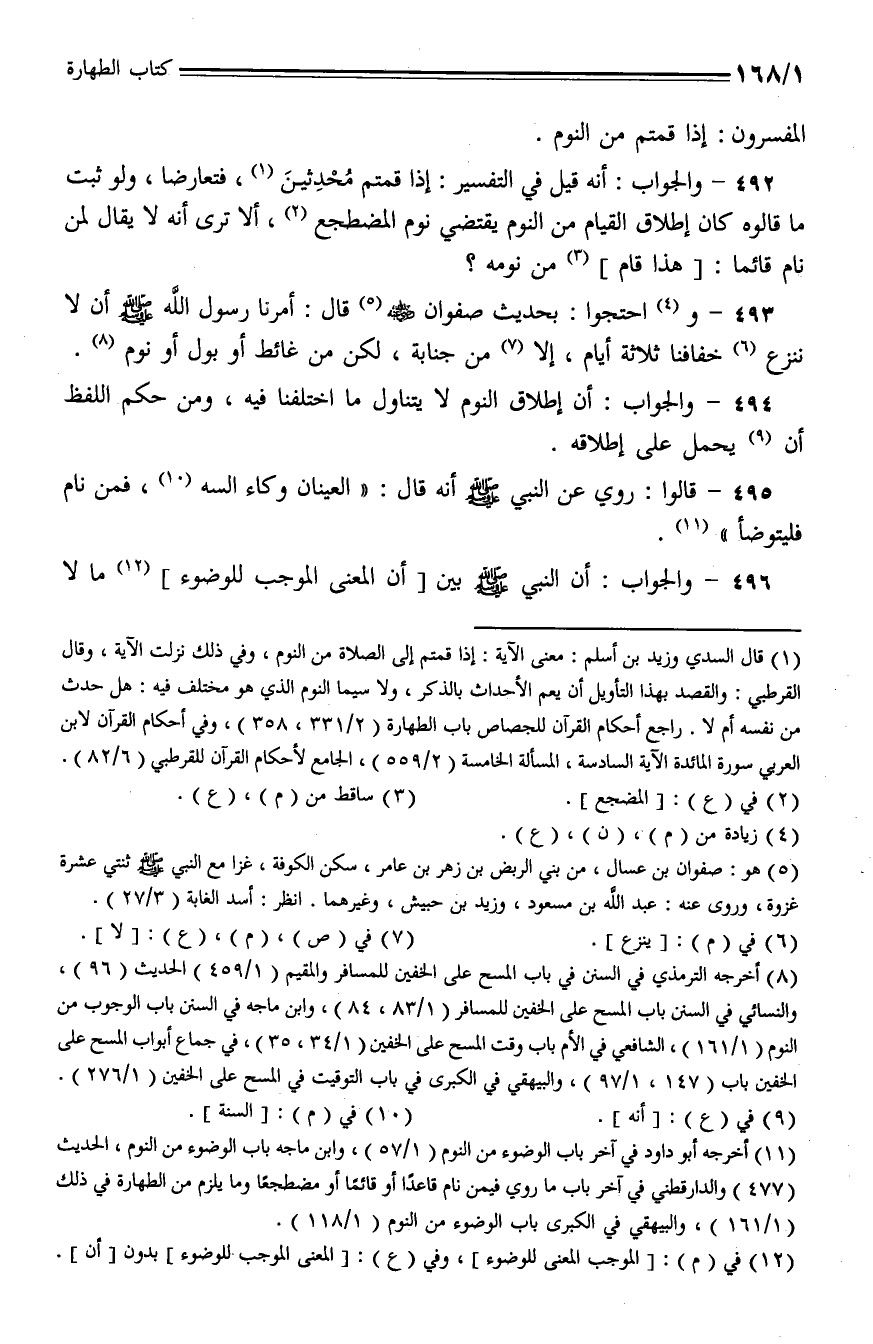 ١٦٨/١ كتاب الطهارة
المفسرون : إذا قمتم من النوم .
٤٩٢ – والجواب : أنه قيل في التفسير : إذا قمتم مُحْدِثينَ (١) ، فتعارضا ، ولو ثبت
ما قالوه كان إطلاق القيام من النوم يقتضي نوم المضطجع (٢) ، ألا ترى أنه لا يقال لمن
نام قائما : [ هذا قام ] (٣) من نومه ؟
٤٩٣ – و (٤) احتجوا : بحديث صفوان ﵁ (٥) قال : أمرنا رسول اللَّه ﷺ أن لا
ننزع (٦) خفافنا ثلاثة أيام ، إلا (٧) من جنابة ، لكن من غائط أو بول أو نوم (٨) .
٤٩٤ – والجواب : أن إطلاق النوم لا يتناول ما اختلفنا فيه ، ومن حكم اللفظ
أن (٩) يحمل على إطلاقه .
٤٩٥ – قالوا : روي عن النبي ﷺ أنه قال : « العينان وكاء السه (١٠) ، فمن نام
فليتوضأ » (١١) .
٤٩٦ – والجواب : أن النبي ﷺ بين [ أن المعنى الموجب للوضوء ] (١٢) ما لا
(١) قال السدي وزيد بن أسلم : معنى الآية : إذا قمتم إلى الصلاة من النوم ، وفي ذلك نزلت الآية ، وقال
القرطبي : والقصد بهذا التأويل أن يعم الأحداث بالذكر ، ولا سيما النوم الذي هو مختلف فيه : هل حدث
من نفسه أم لا . راجع أحكام القرآن للجصاص باب الطهارة ( ٣٣١/٢ ، ٣٥٨ ) ، وفي أحكام القرآن لابن
العربي سورة المائدة الآية السادسة ، المسألة الخامسة ( ٥٥٩/٢ ) ، الجامع لأحكام القرآن للقرطبي ( ٨٢/٦ ) .
(٢) في ( ع ) : [ المضجع ] . (٣) ساقط من ( م ) ، ( ع ) .
(٤) زيادة من ( م ) ، ( ن ) ، ( ع ) .
(٥) هو : صفوان بن عسال ، من بني الربض بن زهر بن عامر ، سكن الكوفة ، غزا مع النبي ﷺ ثنتي عشرة
غزوة ، وروى عنه : عبد اللَّه بن مسعود ، وزيد بن حبيش ، وغيرهما . انظر : أسد الغابة ( ٢٧/٣ ) .
(٦) في ( م ) : [ ينزع ] . (٧) في ( ص ) ، ( م ) ، ( ع ) : [ لا ] .
(٨) أخرجه الترمذي في السنن في باب المسح على الخفين للمسافر والمقيم ( ٤٥٩/١ ) الحديث ( ٩٦ ) ،
والنسائي في السنن باب المسح على الخفين للمسافر ( ٨٣/١ ، ٨٤ ) ، وابن ماجه في السنن باب الوجوب من
النوم ( ١٦١/١ ) ، الشافعي في الأم باب وقت المسح على الخفين ( ٣٤/١ ، ٣٥ ) ، في جماع أبواب المسح على
الخفين باب ( ١٤٧ ، ٩٧/١ ) ، والبيهقي في الكبرى في باب التوقيت في المسح على الخفين ( ٢٧٦/١ ) .
(٩) في ( ع ) : [ أنه ] . (١٠) في ( م ) : [ السنة ] .
(١١) أخرجه أبو داود في آخر باب الوضوء من النوم ( ٥٧/١ ) ، وابن ماجه باب الوضوء من النوم ، الحديث
( ٤٧٧ ) والدارقطني في آخر باب ما روي فيمن نام قاعدًا أو قائمًا أو مضطجعًا وما يلزم من الطهارة في ذلك
( ١٦١/١ ) ، والبيهقي في الكبرى باب الوضوء من النوم ( ١١٨/١ ) .
(١٢) في ( م ) : [ الموجب المعنى للوضوء ] ، وفي ( ع ) : [ المعنى الموجب للوضوء ] بدون [ أن ] .